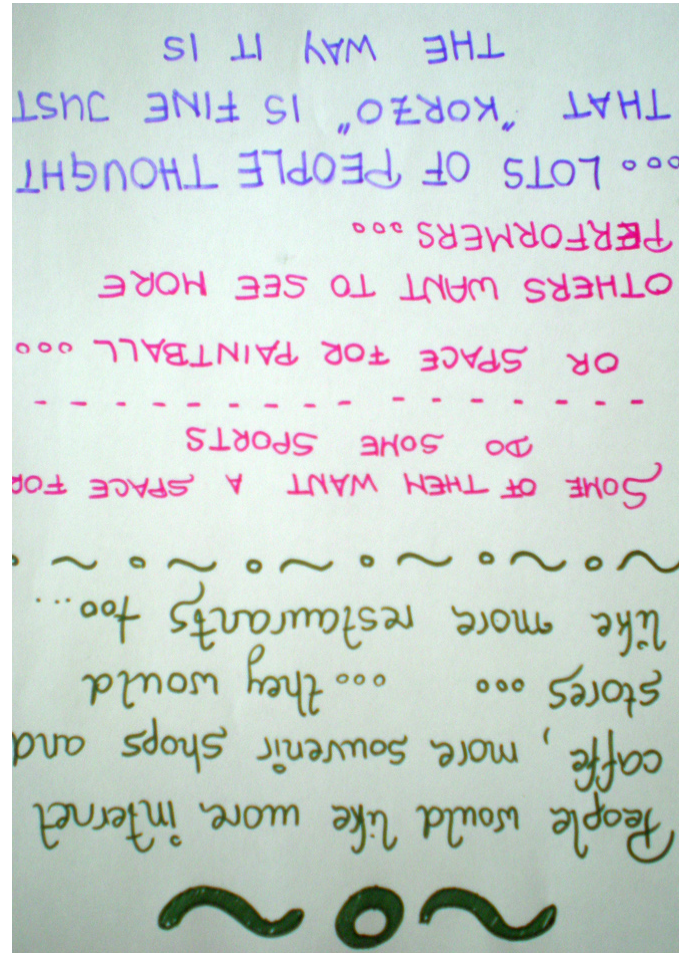 People would like more internet
caffe, more souvenir shops and
stores ... ... they would
like more restaurants too...
SOME OF THEM WANT A SPACE FOR
DO SOME SPORTS
OR SPACE FOR PAINTBALL ...
OTHERS WANT TO SEE MORE
PERFORMERS ...
... LOTS OF PEOPLE THOUGHT
THAT "KORZO" IS FINE JUST
THE WAY IT IS